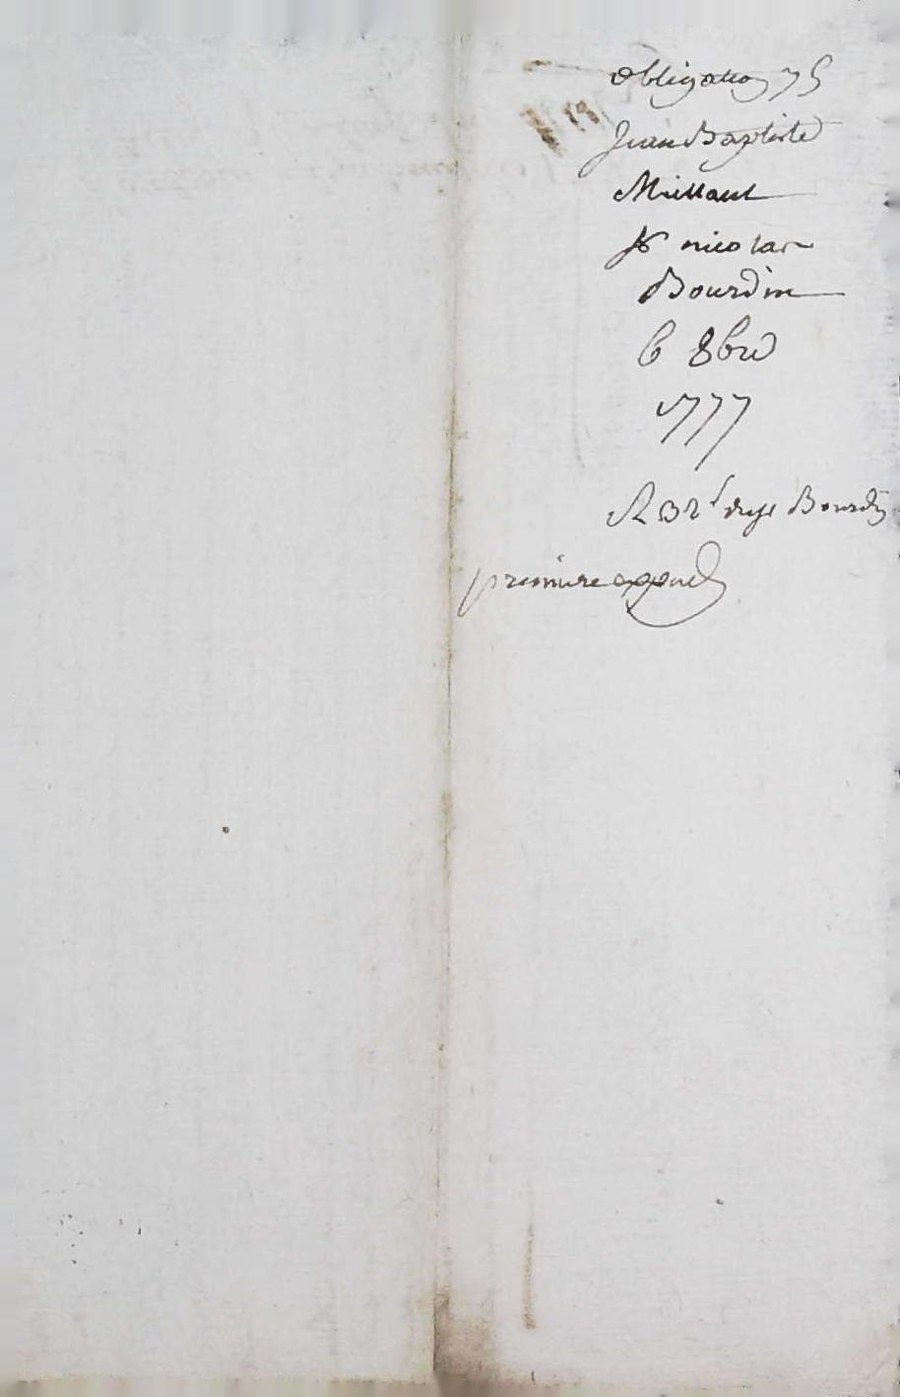 obligation 75
Jean Baptiste
Millaut
nicolas
Bourdin
6 8bre
1777
Bourdin
premiere